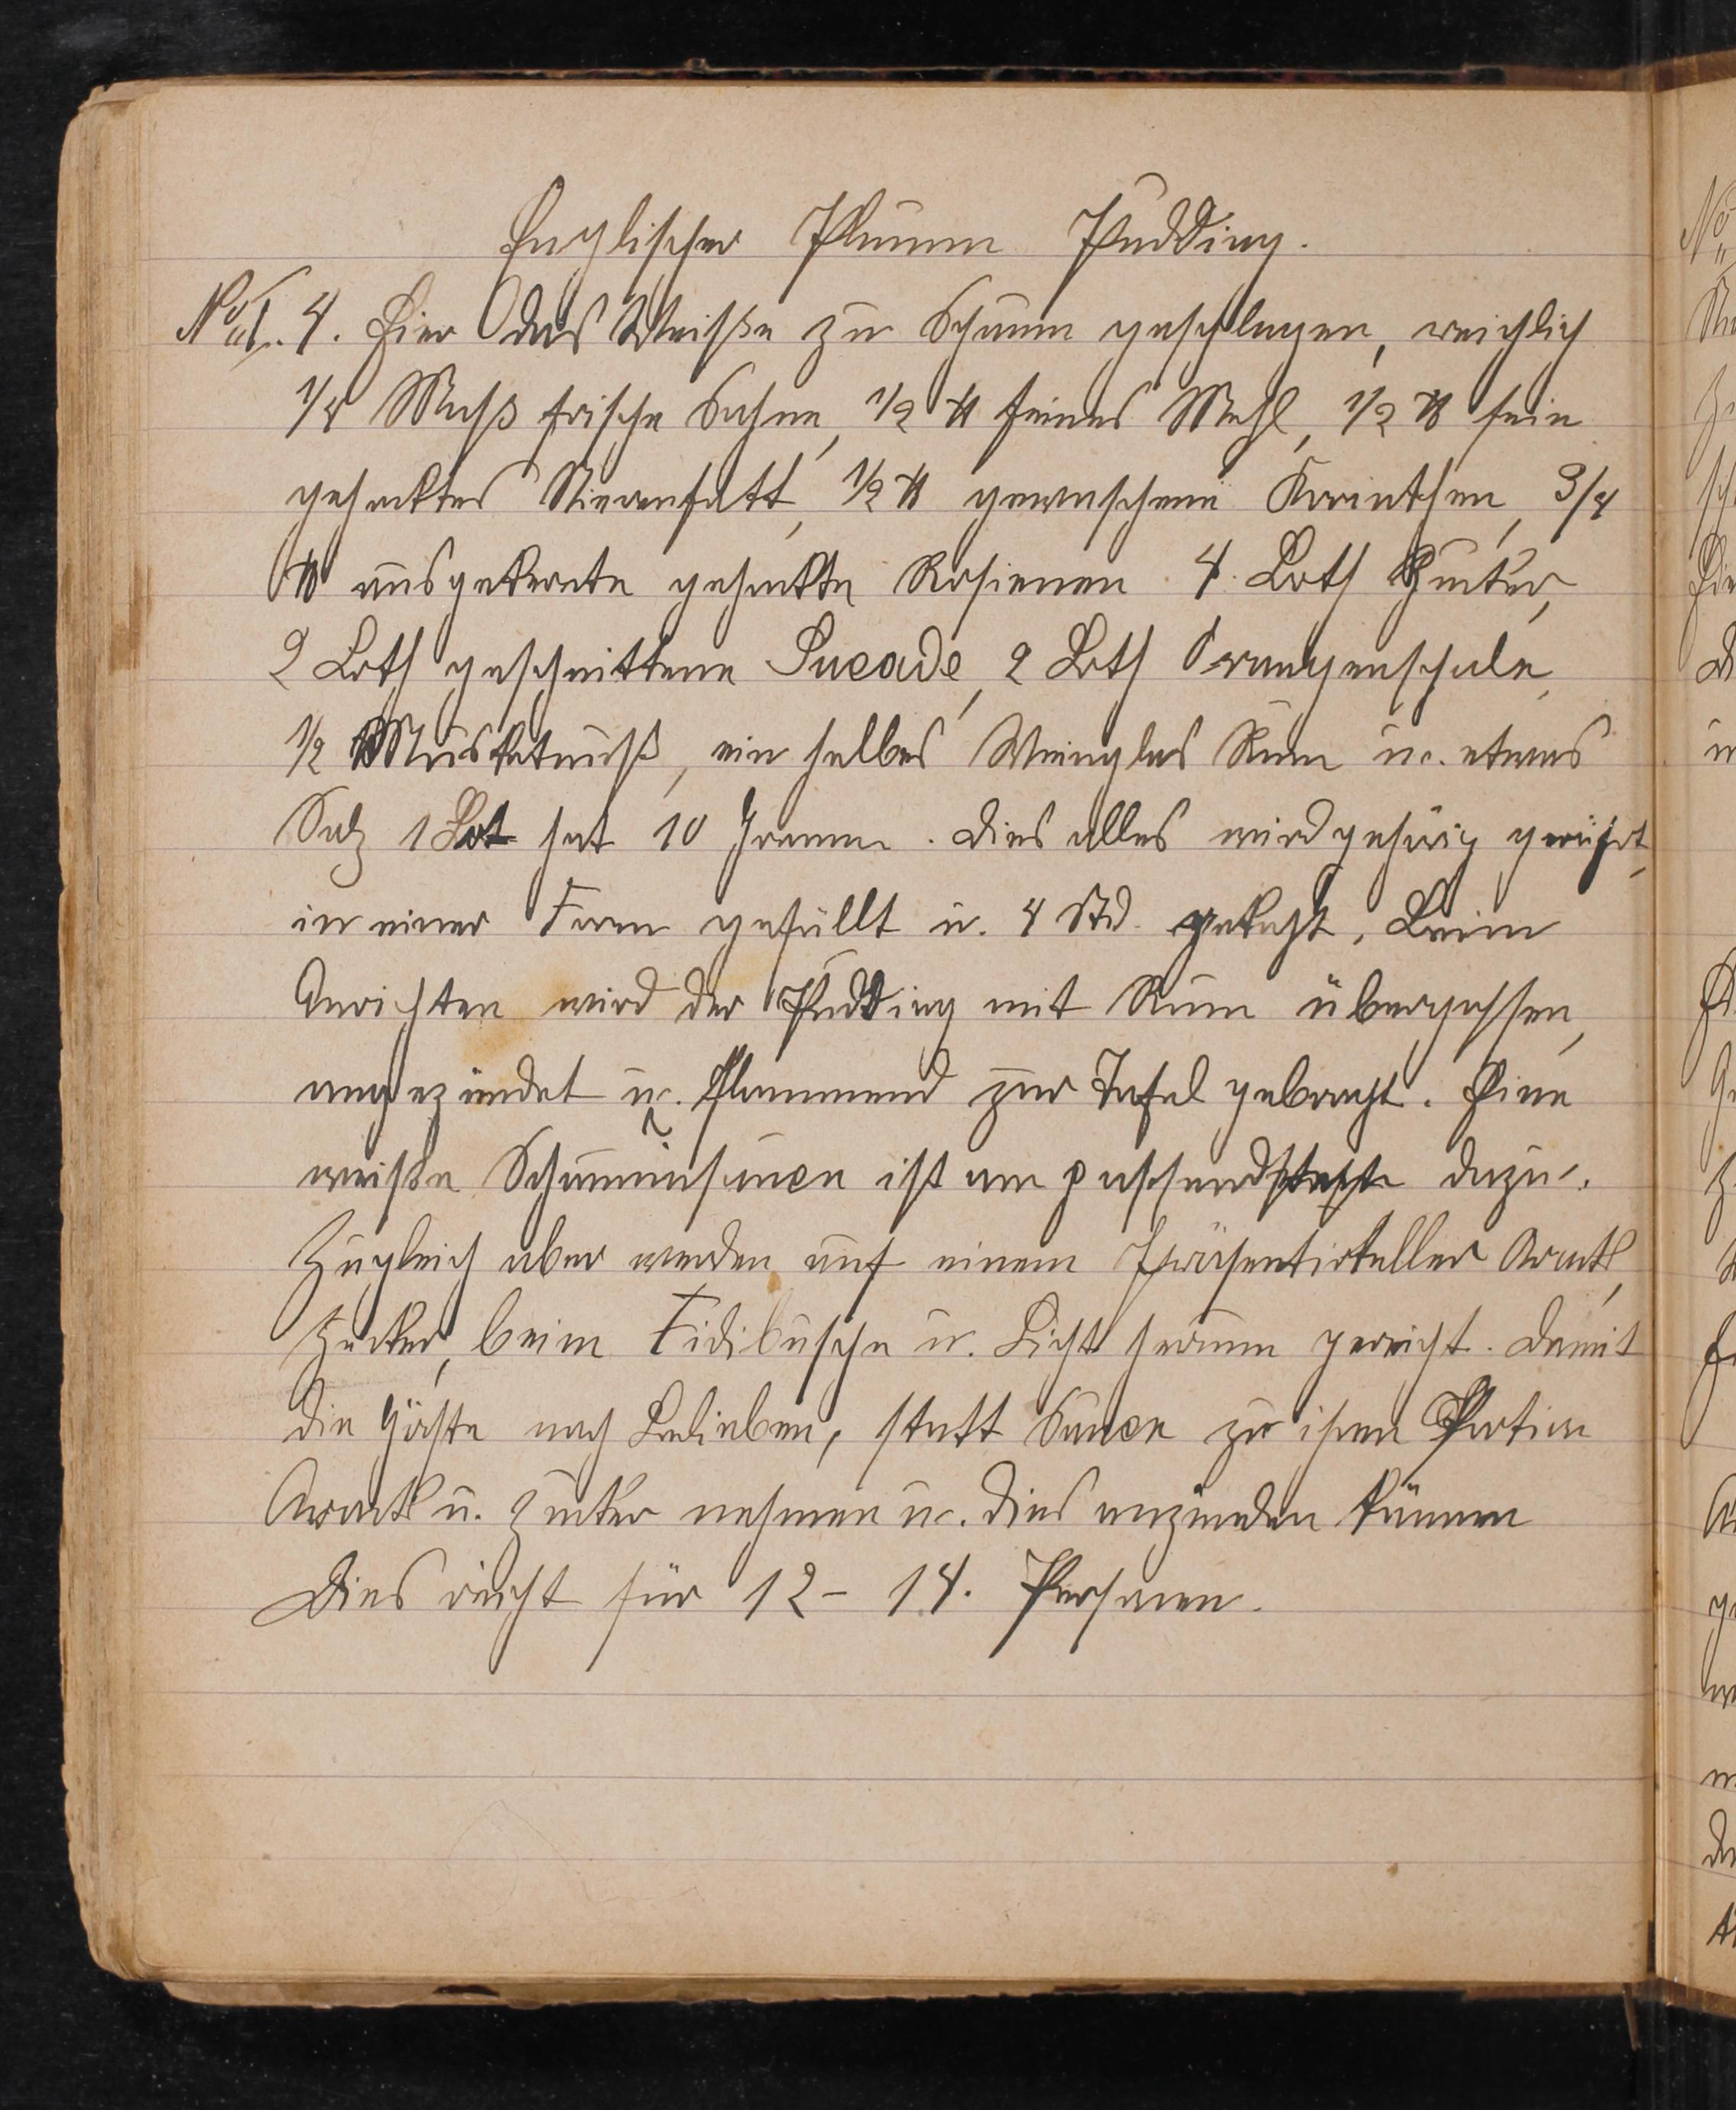 Englischer Plumm Pudding.
No 1. 4. Eier das Weiße zu Schaum geschlagen, reichlich
1/4 Maß frische Sahne, 1/2 ℔ feines Mehl, 1/2 ℔ fein
gehacktes Nierenfett, 1/2 ℔ gewaschene Korinthen, 3/4
℔ ausgekernte gehackte Rosienen 4. Loth Zucker,
2 Loth geschnittene Sucade, 2 Loth Orangenschale,
1/2 Muskatnuß, ein halbes Weinglas Rum u. etwas
Salz 1 Lot hat 10 Gramm. Dies alles wird gehörig gerührt,
in einer Form gefüllt u. 4 Std. gekocht. Beim
Anrichten wird der Pudding mit Rum übergossen,
angezündet u. flammend zur Tafel gebracht. Eine
weiße Schaumsauce ist am passendsten dazu.
Zugleich aber werden auf einem Präsentirteller Arack,
Zucker, beim Fidibusche u. Licht herum gereicht. Damit
die Gäste nach Belieben, statt Sauce zu ihren Portion
Arack u. Zucker nehmen u. dies anzünden können
Dies reicht für 12 - 14. Personen.